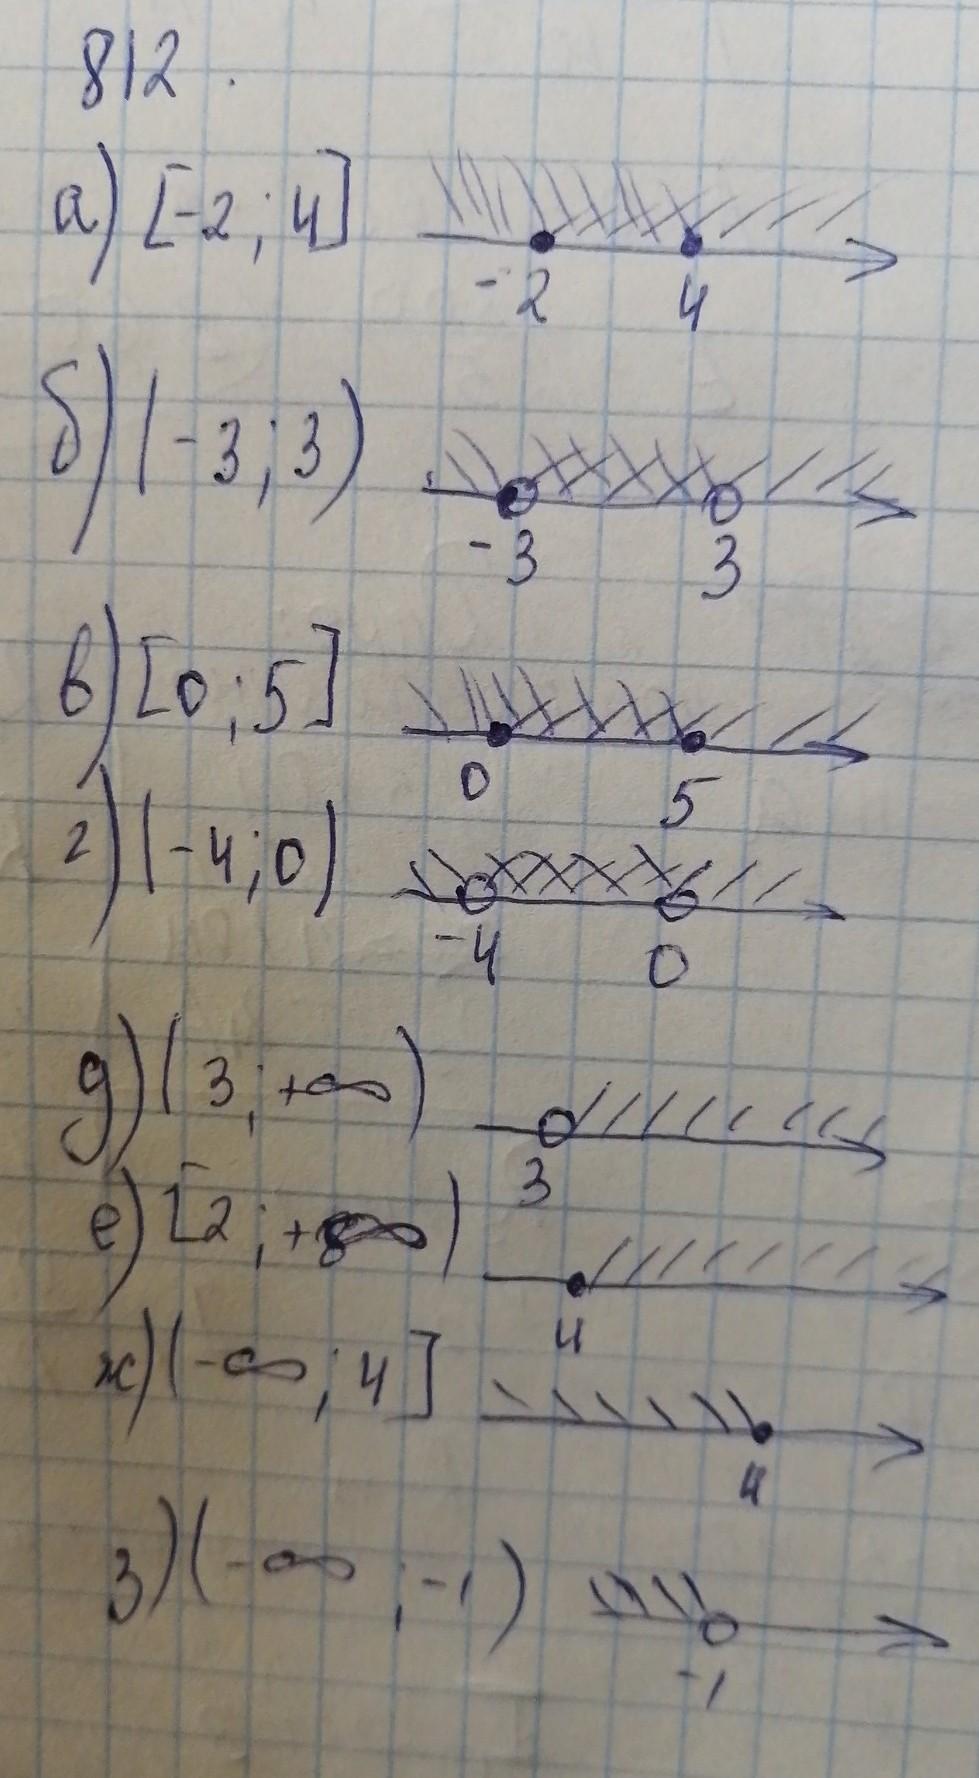 812.
а) [-2; 4]
-2 4
б) (-3; 3)
-3 3
в) [0; 5]
0 5
г) (-4; 0)
-4 0
д) (3; +∞)
3
е) [2; +∞)
4
ж) (-∞; 4]
4
з) (-∞; -1)
-1